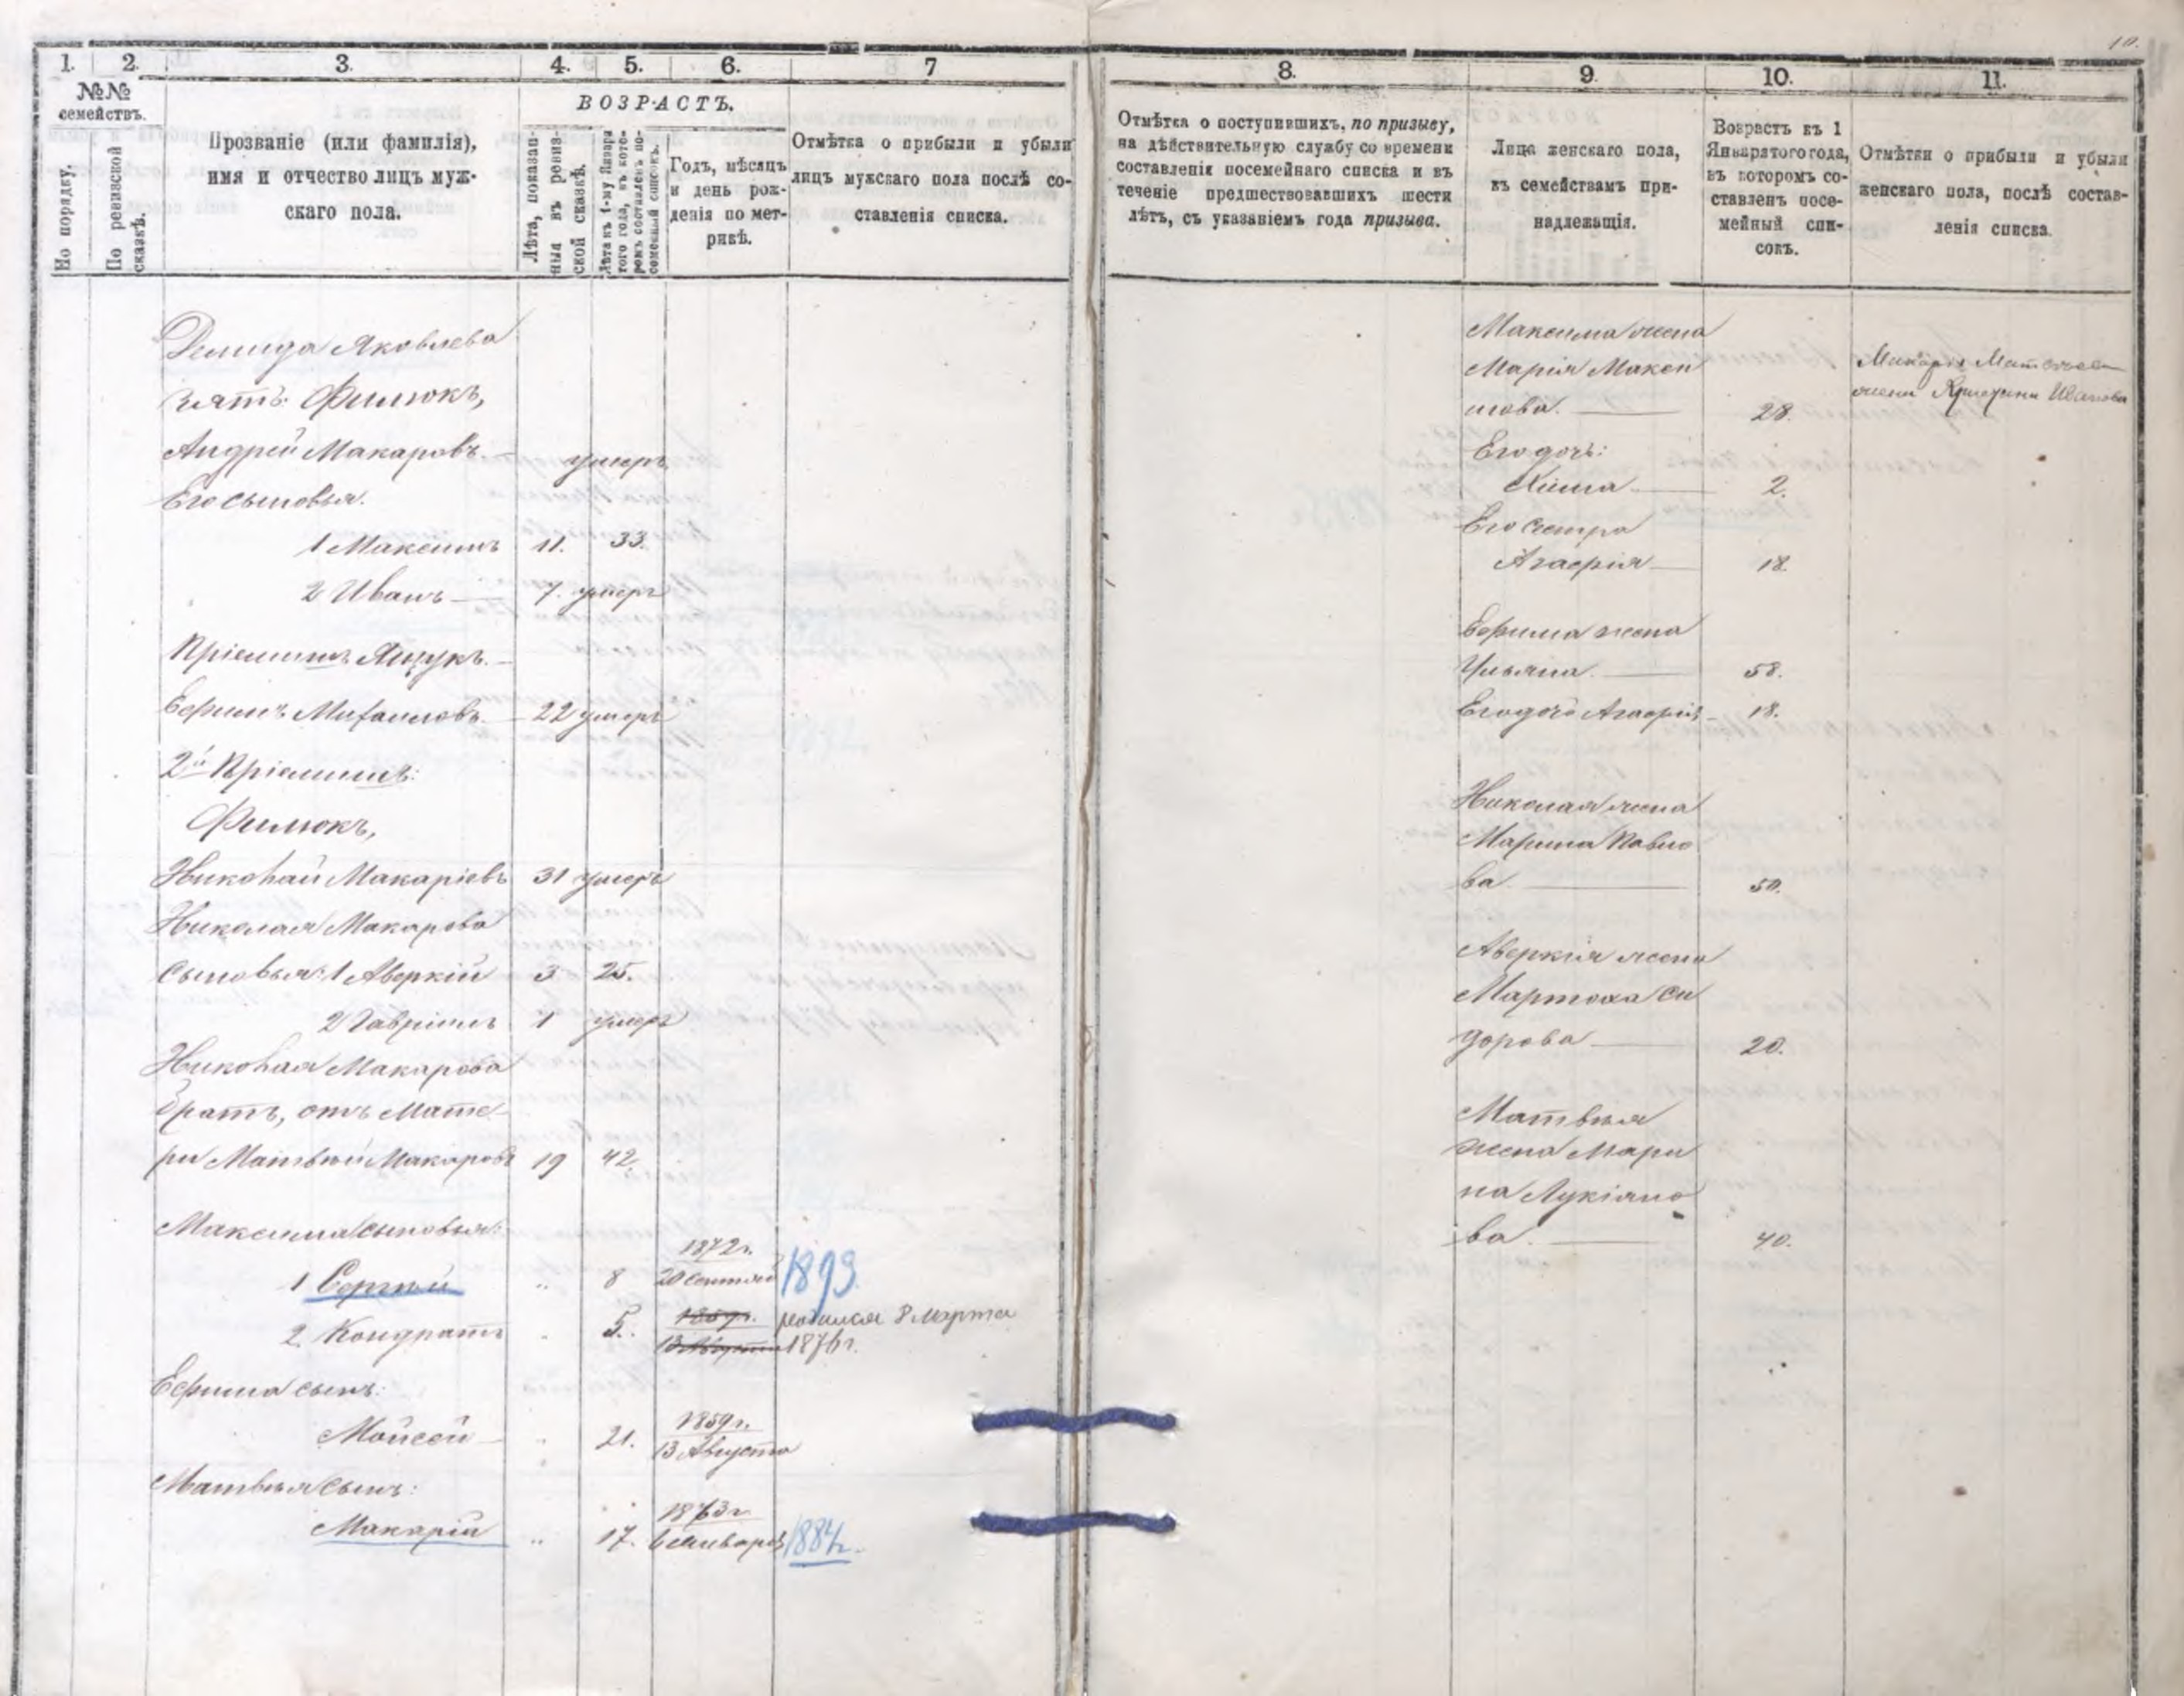 10.
1.
2.
3.
4.
5.
6.
7
8.
9.
10.
11.
№№
семействъ.
По порядку.
По ревизской
сказкѣ.
Прозваніе (или фамилія),
имя и отчество лицъ муж-
скаго пола.
ВОЗРАСТЪ.
Лѣта, показан-
ныя въ ревиз-
ской сказкѣ.
Лѣта къ 1-му Января
того года, въ кото-
ромъ составленъ по-
семейный списокъ.
Годъ, мѣсяцъ
и день рож-
денія по мет-
рикѣ.
Отмѣтка о прибыли и убыли
лицъ мужскаго пола послѣ со-
ставленія списка.
Отмѣтка о поступившихъ, по призыву,
на дѣйствительную службу со времени
составленія посемейнаго списка и въ
теченіе предшествовавшихъ шести
лѣтъ, съ указаніемъ года призыва.
Лица женскаго пола,
къ семействамъ при-
надлежащія.
Возрастъ къ 1
Января того года,
въ которомъ со-
ставленъ посе-
мейный спи-
сокъ.
Отмѣтки о прибыли и убыли
женскаго пола, послѣ состав-
ленія списка.
Демида Яковлева
зять: Филюкъ,
Андрей Макаровъ. — умеръ
Его сыновья.
1 Максимъ 11. 33.
2 Иванъ — 7. умеръ
Пріемышъ Янчукъ. —
Ефимъ Михайловъ. — 22 умеръ
2й Пріемышъ:
Филюкъ,
Николай Макаріевъ 31 умеръ
Николая Макарова
сыновья: 1 Аверкій 3 25.
2 Гавріилъ 1 умеръ
Николая Макарова
братъ, отъ мате-
ри Матвѣй Макаровъ 19 42.
Максима сыновья:
1 Сергѣй " 8 1872 г.
20 Сентяб 1893
2 Кондратъ " 5. родился 8 Марта
13 Августа 1876 г.
Ефима сынъ:
Мойсей — " 21. 1859 г.
13 Августа
Матвѣя сынъ:
Макарій " 17. 1863 г.
Января 1884 г.
Максима жена
Марія Макси
мова. — 28.
Его дочь:
Ксенія — 2.
Его сестра
Агафія — 18.
Ефима жена
Ульяна. — 58.
Его дочь Агафія — 18.
Николая жена
Марина Павло
ва. — 50.
Аверкія жена
Мартоха Си
дорова — 20.
Матвѣя
жена Мари
на Лукіано
ва. — 40.
Макарія Матвѣева
жена Христина Иванова